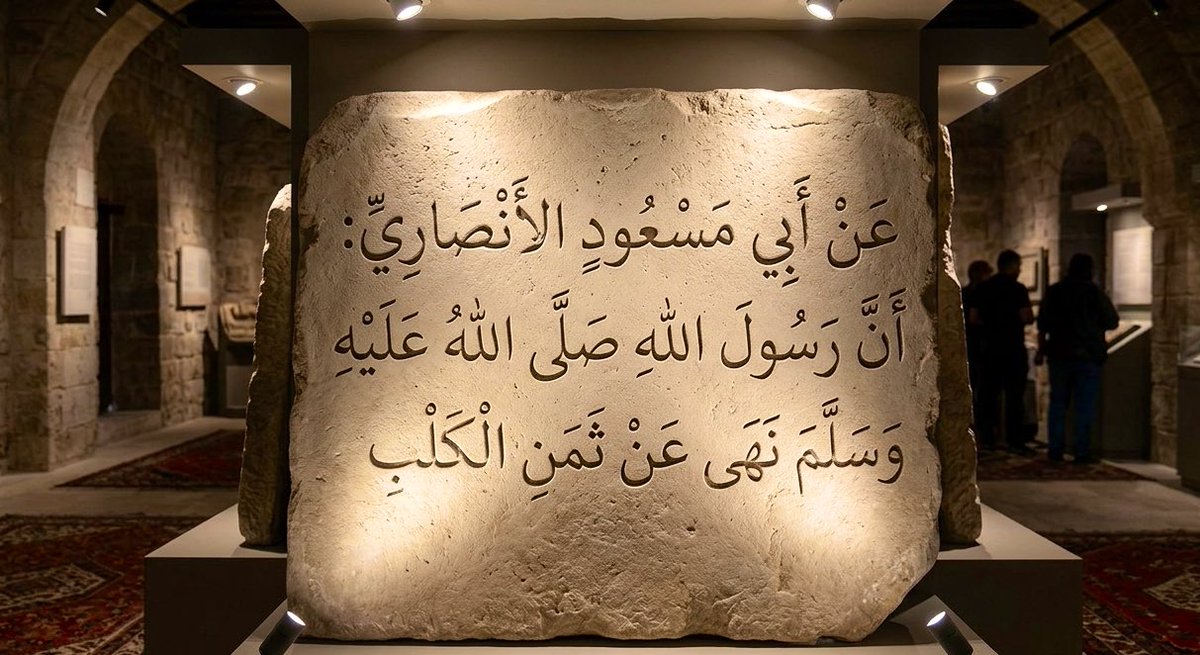 عَنْ أَبِي مَسْعُودٍ الأَنْصَارِيِّ:
أَنَّ رَسُولَ اللهِ صَلَّى اللهُ عَلَيْهِ
وَسَلَّمَ نَهَى عَنْ ثَمَنِ الْكَلْبِ